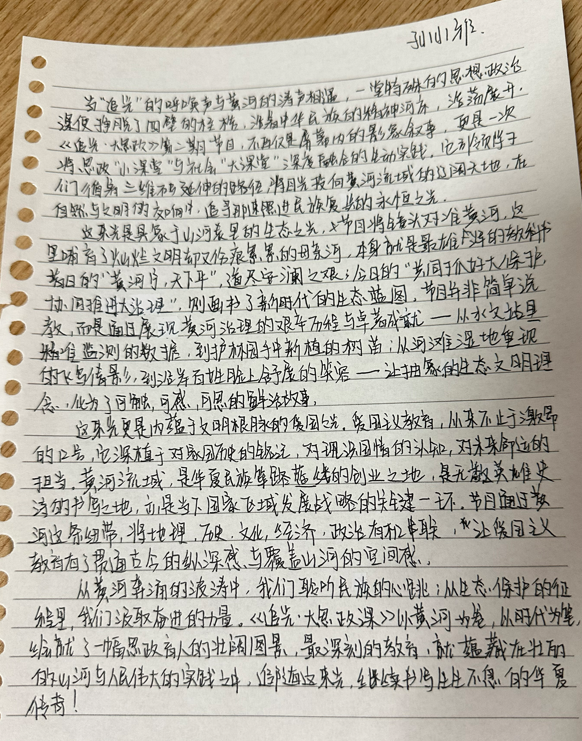 当“追光”的呼唤声与黄河的涛声相遇,一堂特殊的思想政治
课便挣脱了四壁的桎梏,沿着中华民族的精神河床,浩荡展开.
《追光·大思政》第二期节目,不再仅是屏幕内的影象叙事,更是一次
将思政“小课堂”与社会“大课堂”深度融合的生动实践,它引领学子
们循着三维不断延伸的路径,将目光投向黄河流域的辽阔天地,在
自然与文明的交响中,追寻那束照进民族复兴的永恒之光.
这束光是具象于山河表里的生态之光,节目将镜头对准黄河,这
里哺育了灿烂文明却又伤痕累累的母亲河,本身就是最雄浑的教科书
昔日的“黄河宁,天下平”,道尽安澜之艰;今日的“共同抓好大保护,
协同推进大治理”,则画书了新时代的生态蓝图,节目并非简单说
教,而是面日展现黄河治理的艰辛历程与卓著成就——从水文站里
精准监测的数据,到护林员手中新植的树苗;从河滩湿地重现
的飞鸟倩影,到沿岸百姓脸上舒展的笑容——让抽象的生态文明理
念,化为了可触,可感,可思的鲜活故事.
这束光更是内蕴于文明根脉的爱国之光.爱国主义教育,从来不止于激昂
的口号,它深植于对家国历史的铭记,对现实国情的认知,对未来命运的
担当.黄河流域,是华夏民族筚路蓝缕的创业之地,是无数英雄史
诗的书写之地,亦是当下国家区域发展战略的关键一环.节目通过黄
河这条纽带,将地理,历史,文化,经济,政治有机串联,让爱国主义
教育有了贯通古今的纵深感与覆盖山河的空间感.
从黄河奔涌的波涛中,我们聆听民族的心跳;从生态保护的征
程里,我们汲取奋进的力量.《追光·大思政课》以黄河为卷,以时代为笔,
绘就了一幅思政育人的壮阔图景,最深刻的教育,就蕴藏在壮丽
的山河与人民伟大的实践之中,追随这束光,继续书写生生不息的华夏
传奇!